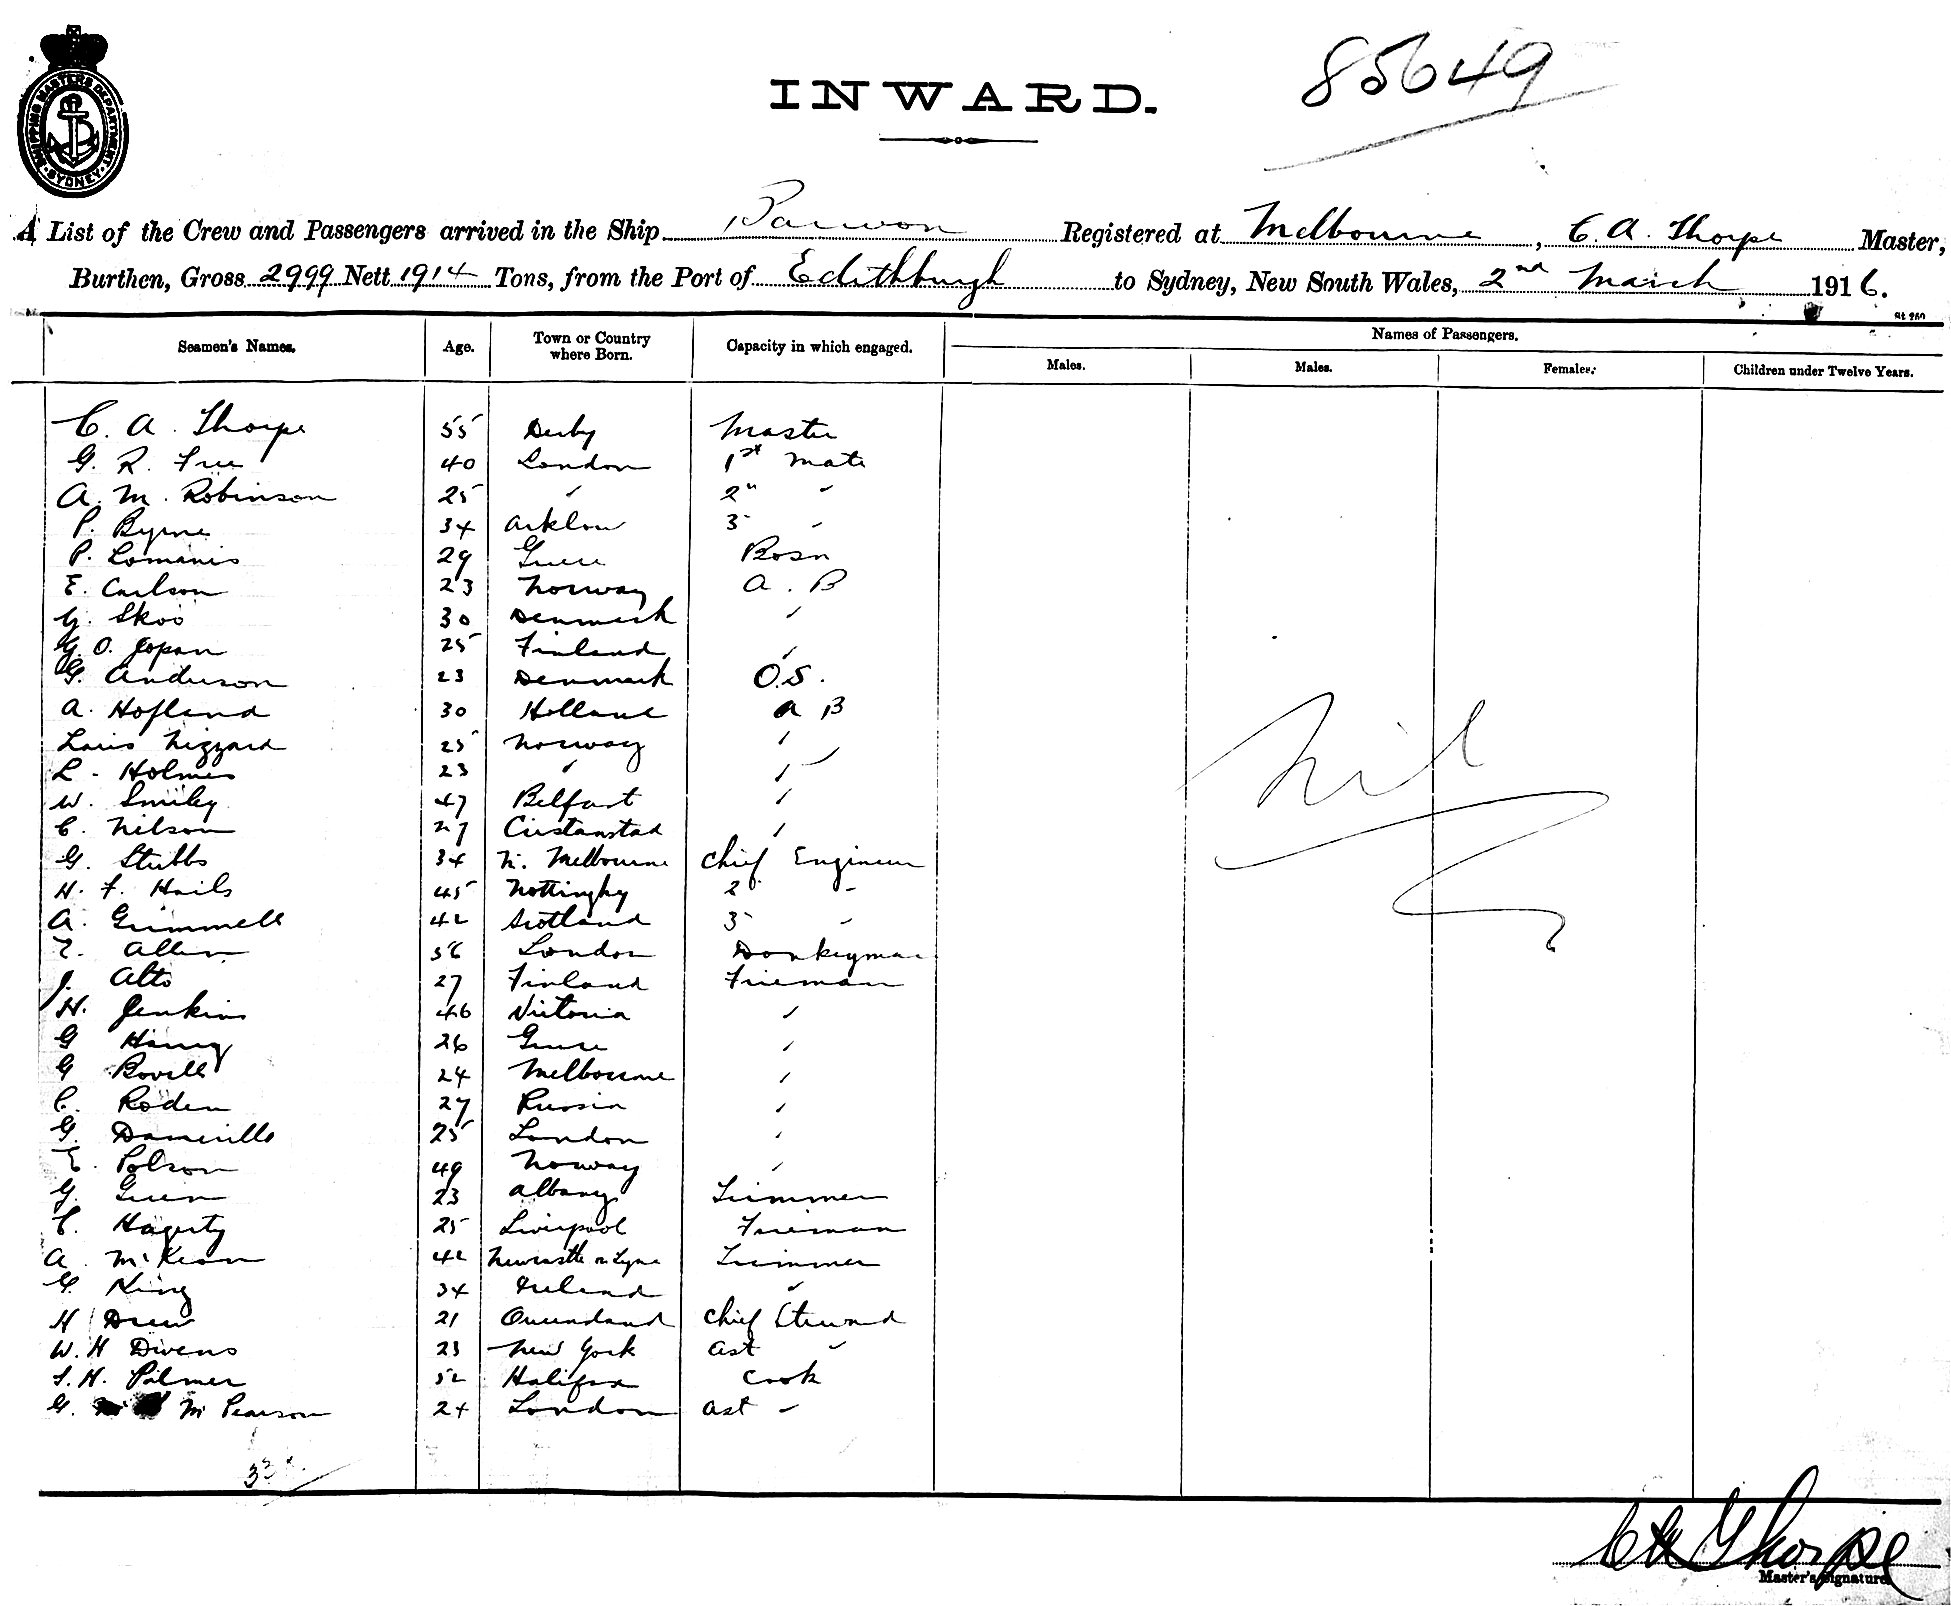 SHIPPING MASTERS DEPARTMENT SYDNEY
INWARD.
85649
A List of the Crew and Passengers arrived in the Ship Barwon Registered at Melbourne, C. A. Thorpe Master,
Burthen, Gross 2999 Nett 1914 Tons, from the Port of Edithburgh to Sydney, New South Wales, 2nd March 1916.
Names of Passengers.
Seamen's Names. Age. Town or Country where Born. Capacity in which engaged. Males. Males. Females. Children under Twelve Years.
C. A. Thorpe 55 Derby Master
G. R. Free 40 London 1st Mate
A. M. Robinson 25 " 2" "
P. Byrne 34 Arklow 3 "
P. Lomanis 29 Greece Bosn
E. Carlson 23 Norway A. B
G. Skoo 30 Denmark "
G. O. Jopan 25 Finland "
G. Anderson 23 Denmark O.S.
A. Hofland 30 Holland A B
Louis Nizzard 25 Norway "
L. Holmes 23 " "
W. Smiley 47 Belfast "
C. Nilson 27 Cristanstad "
G. Stubbs 34 N. Melbourne Chief Engineer
H. F. Hails 45 2 "
A. Grimmell 42 Scotland 3 "
Allen 56 London Donkeyman
J. Alto 27 Finland Fireman
H. Jenkins 46 Victoria "
G 26 Greece "
G Bovell 24 Melbourne "
C. Roden 27 Russia "
G. Dameville 25 London "
E. Polson 49 Norway "
G. Green 23 Albany Trimmer
C. Hagerty 25 Liverpool Fireman
A. McKeon 42 Newcastle n Tyne Trimmer
G. King 34 Ireland "
H Drew 21 Queensland Chief Steward
W. H Divens 23 New York Ast "
S. H. Palmer 52 Halifax Cook
G. M Pearson 24 London Ast "
Nil
33
C A Thorpe
Master's Signature